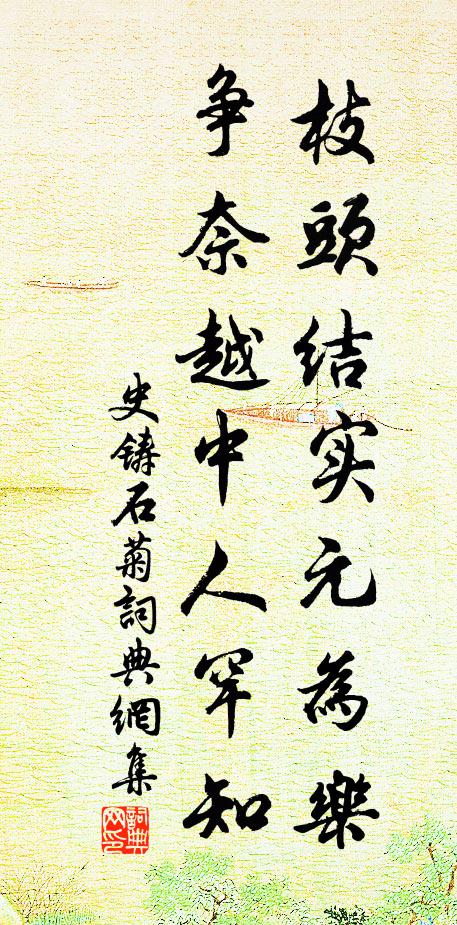 枝頭结实元為樂
争奈越中人罕知
史鋳石菊詞典網集
詞典网印